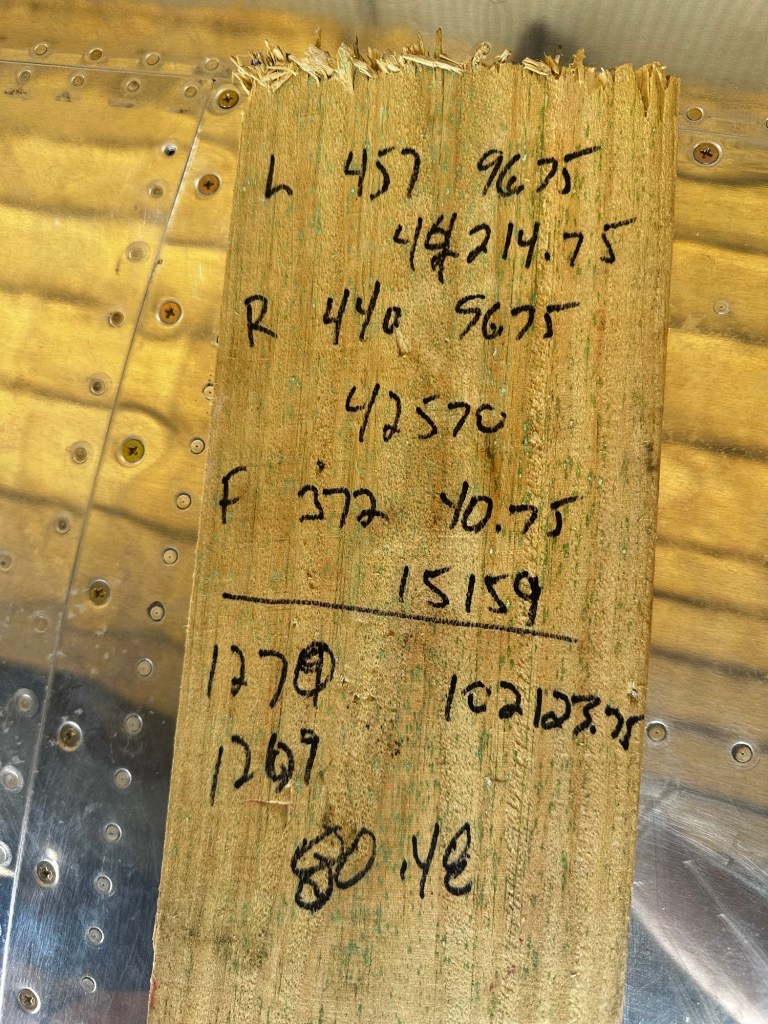 L 457 9675
44214.75
R 440 9675
42570
F 372 40.75
15159
127
102123.75
1269
80.48